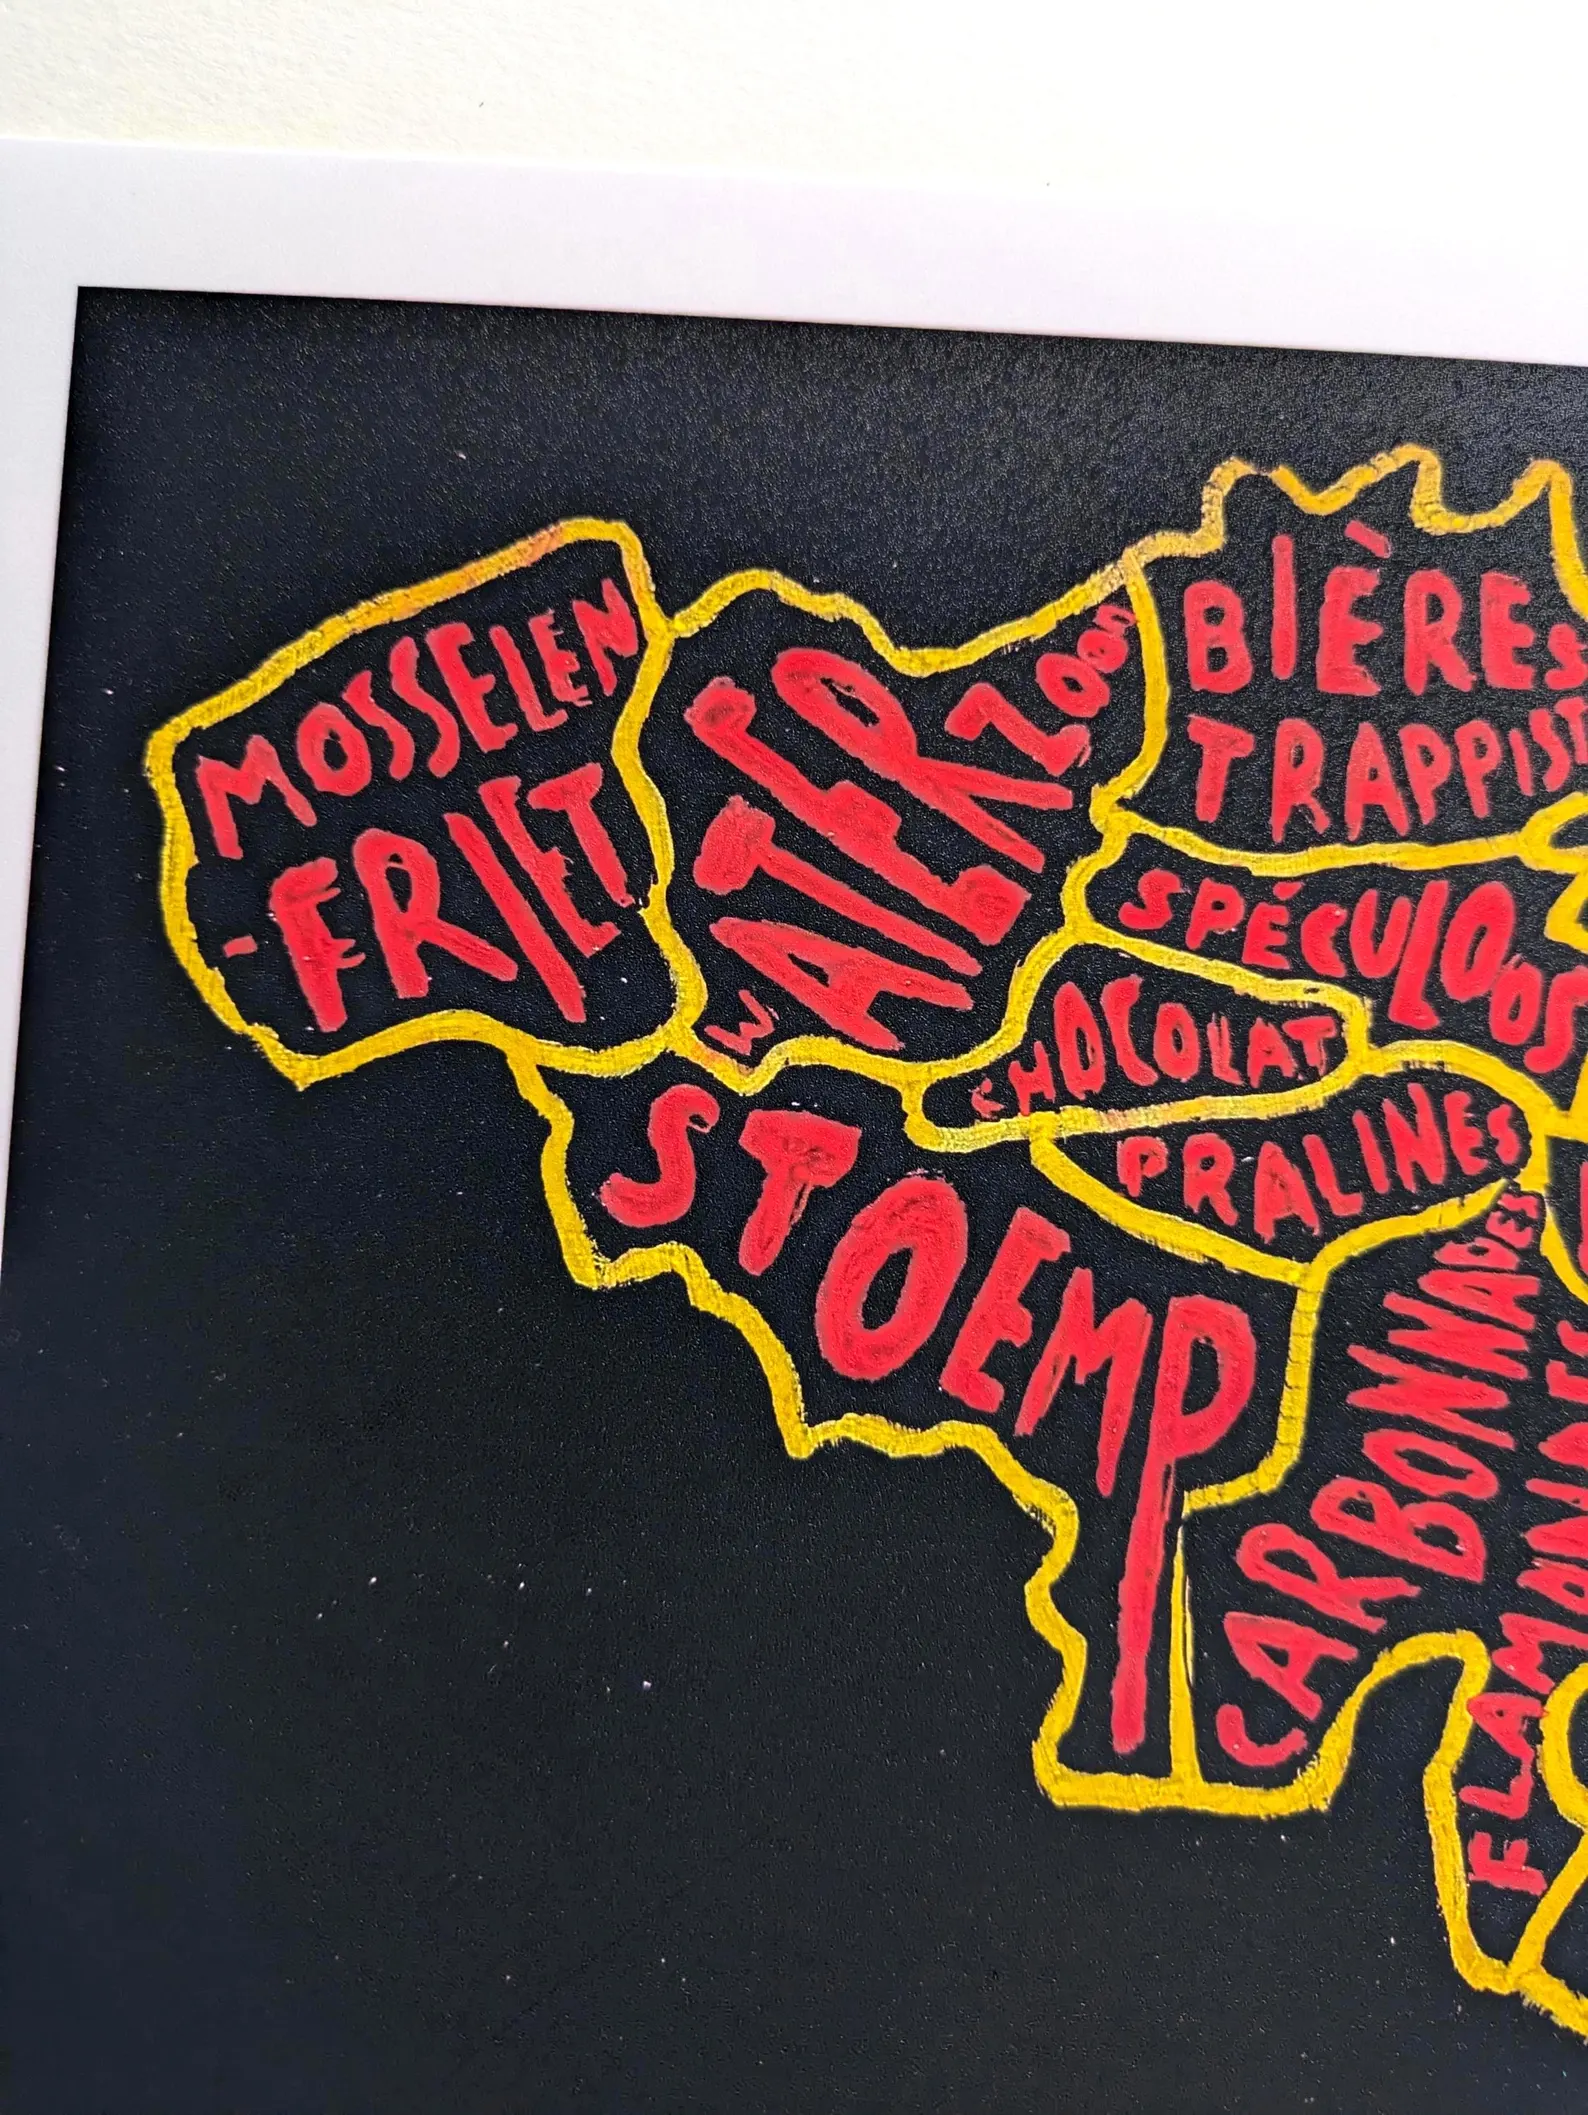 MOSSELEN
-FRIET
WATERZOOI
BIÈRES
TRAPPIST
SPÉCULOOS
CHOCOLAT
PRALINES
STOEMP
CARBONNADES
FLAMANDES